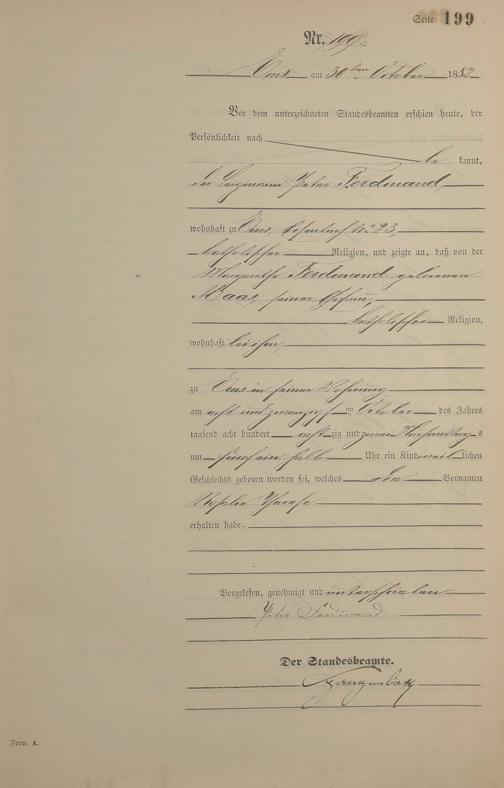 Seite 199
Nr. 199.
Ems am 30ten October 1882.
Vor dem unterzeichneten Standesbeamten erschien heute, der
Persönlichkeit nach
be kannt,
der Bergmann Peter Ferdinand,
wohnhaft zu Ems, No 23,
katholischer Religion, und zeigte an, daß von der
Margarethe Ferdinand geborenen
Maas, seiner Ehefrau,
katholischer Religion,
wohnhaft bei ihm,
zu Ems in seiner Wohnung
am acht und zwanzigsten October des Jahres
tausend acht hundert acht zig und zwei Nachmittags
um fünf ein halb Uhr ein Kind weiblichen
Geschlechts geboren worden sei, welches die Vornamen
Rosalia Therese
erhalten habe.
Vorgelesen, genehmigt und unterschrieben
Peter Ferdinand
Der Standesbeamte.
Form. A.